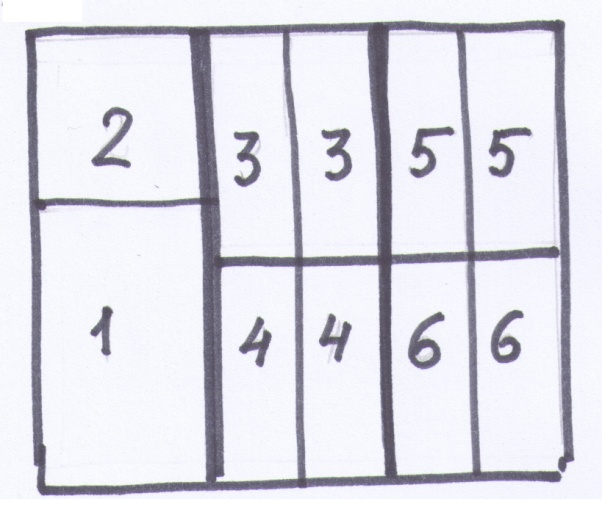 2 3 3 5 5
1 4 4 6 6